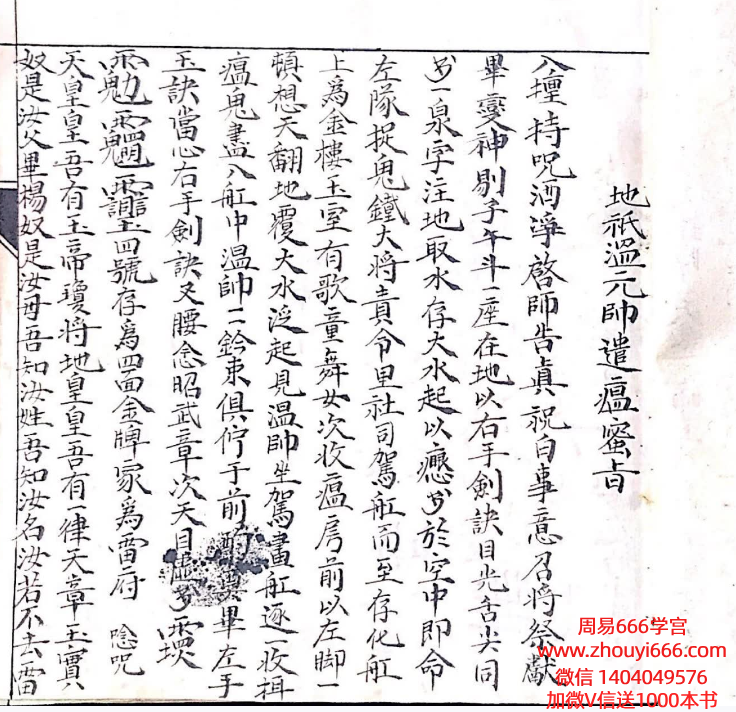 地祇溫元帥遣瘟蜜旨
入壇持呪洒淨啓師告真祝白事意召將祭獻
畢變神剔子午斗一座在地以右手劍訣目光舌尖同
一泉字注地取水存大水起以於空中即命
左隊捉鬼鐵大將責令里社司駕舡而至存化舡
上爲金樓玉室有歌童舞女次收瘟房前以左脚一
頓想天翻地覆大水泛起見溫帥坐駕畫舡逐一收捉
瘟鬼盡入舡中溫帥二鈴束俱佇于前酌奠畢左手
玉訣當心右手劍訣叉腰念昭武章次天目虛
四號存爲四面金牌家爲雷府 唸呪
天皇皇吾有玉帝瓊將地皇皇吾有一律天章玉實八
奴是汝父畢楊奴是汝母吾知汝姓吾知汝名汝若不去雷
周易666学宫
www.zhouyi666.com
微信 1404049576
加微V信送1000本书